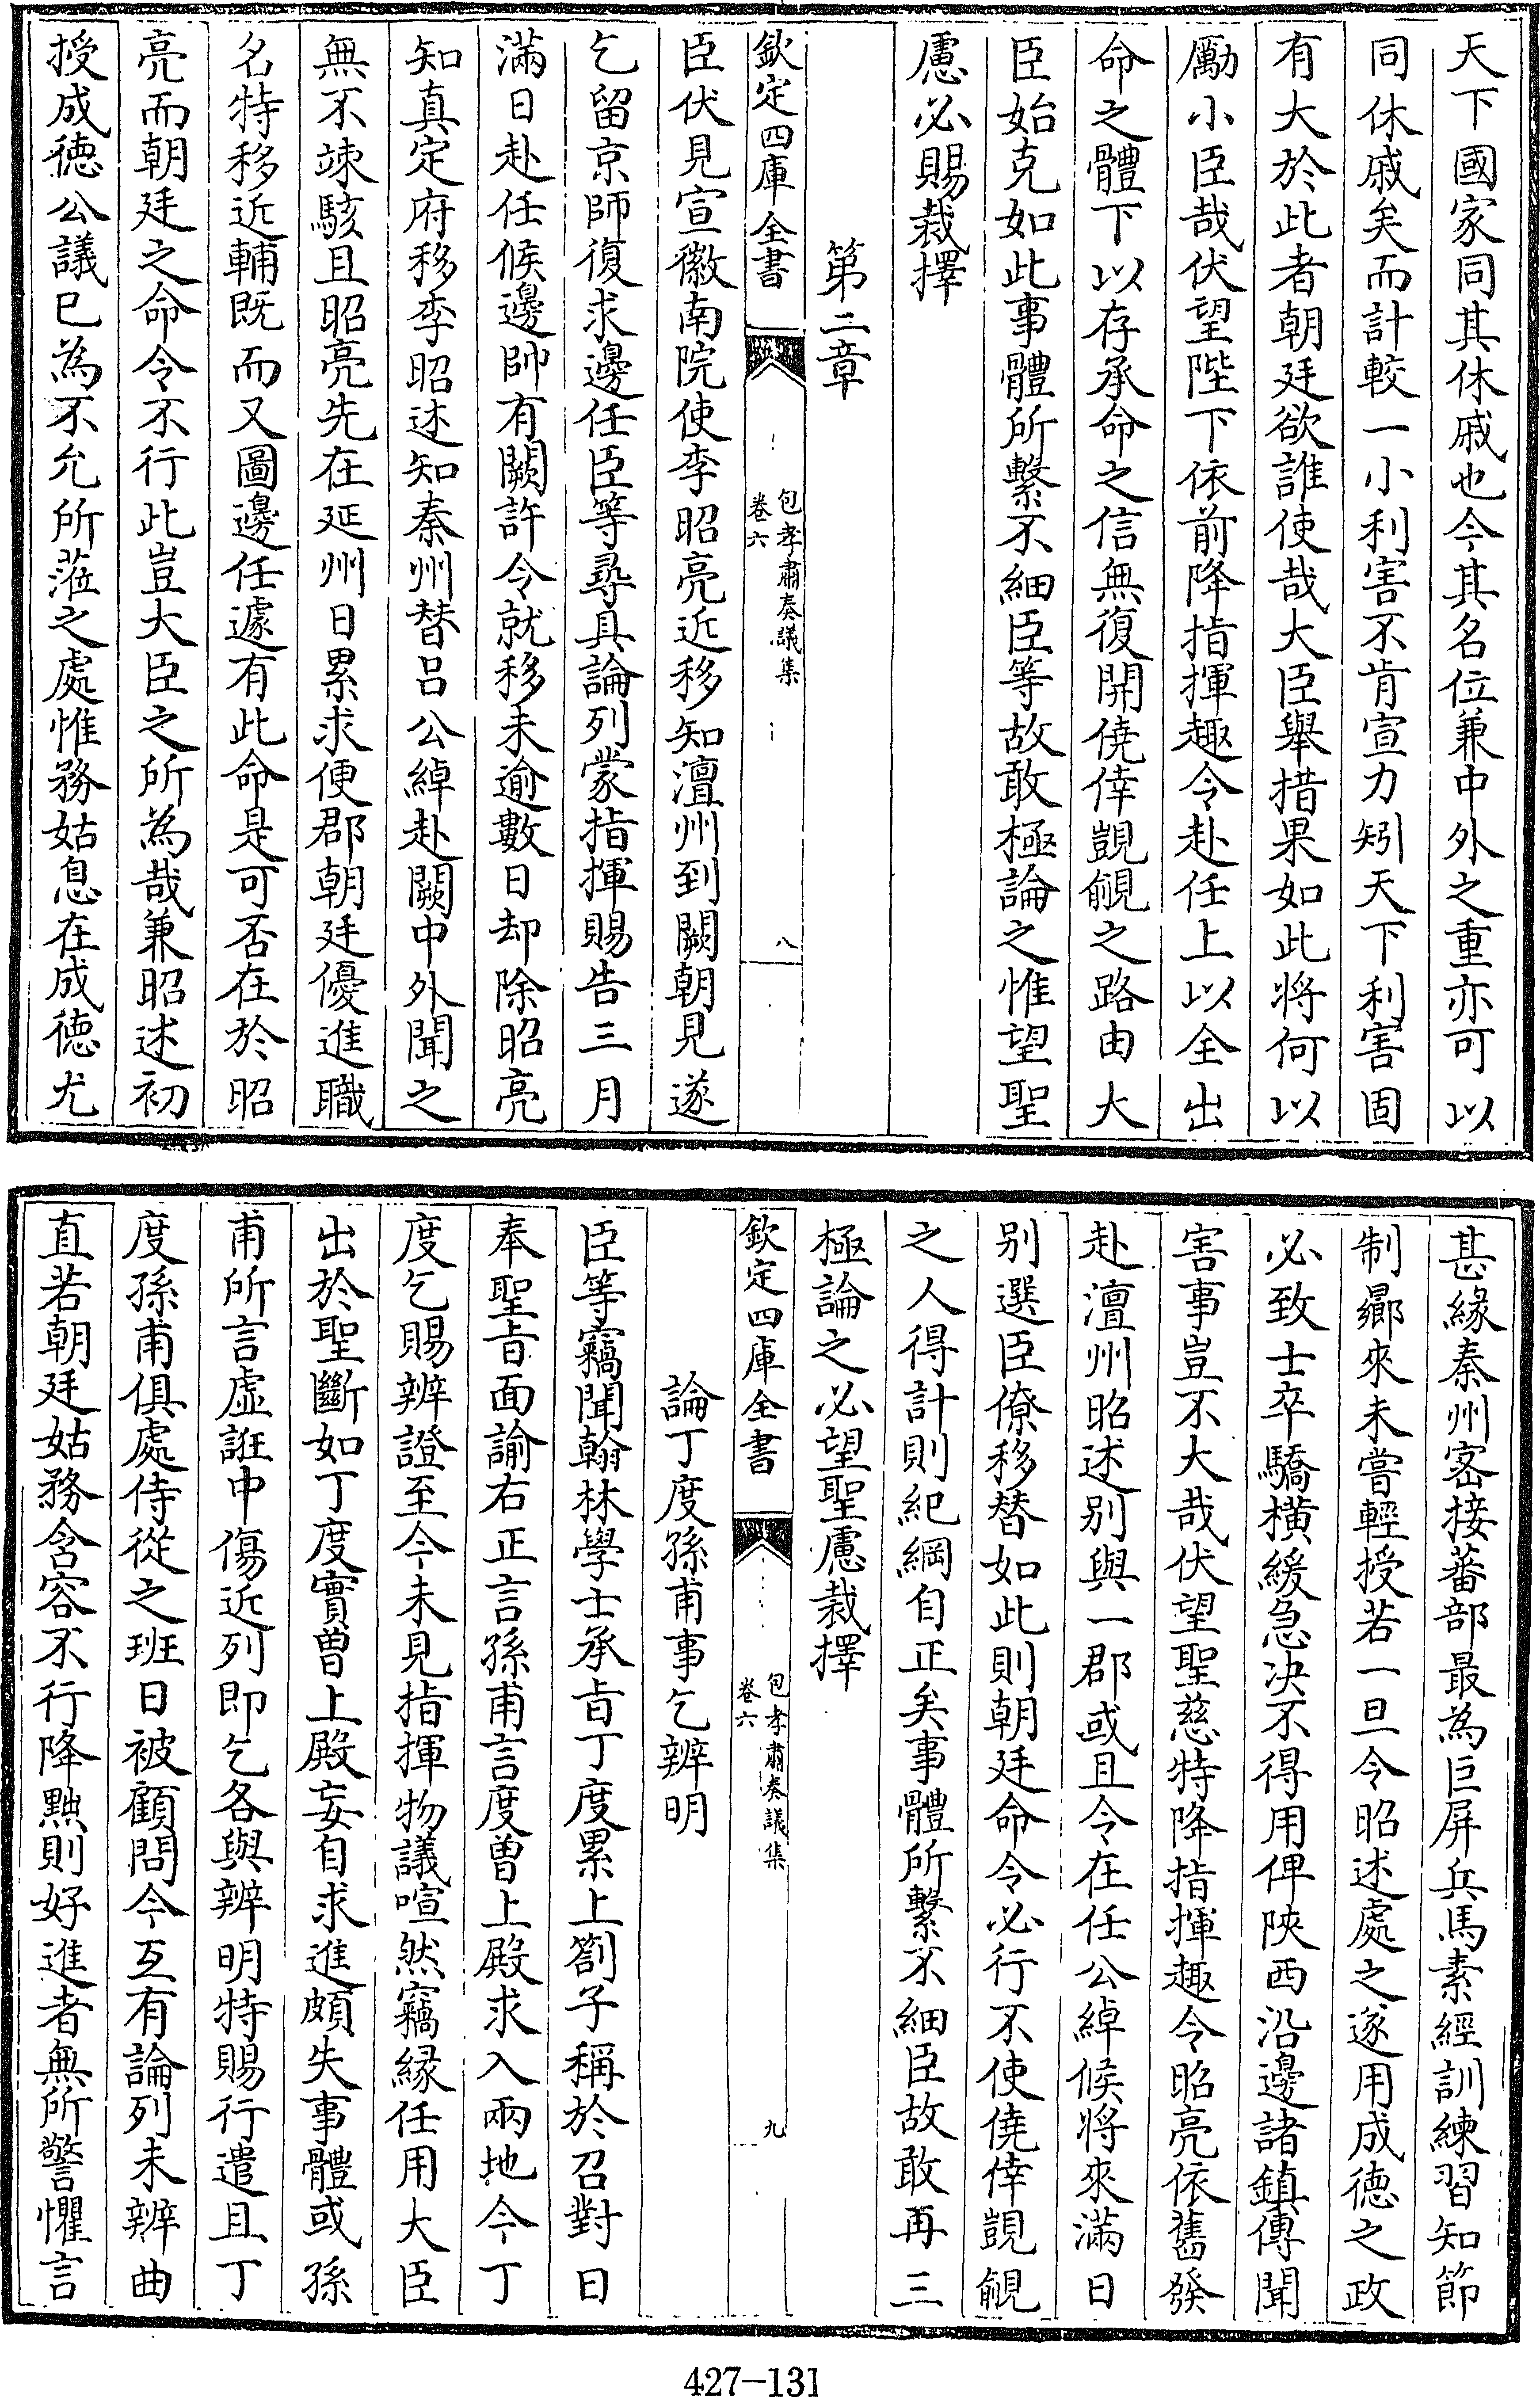 天下國家同其休戚也今其名位兼中外之重亦可以
同休戚矣而計較一小利害不肯宣力矧天下利害固
有大於此者朝廷欲誰使哉大臣舉措果如此将何以
勵小臣哉伏望陛下依前降指揮趣令赴任上以全出
命之體下以存承命之信無復開僥倖覬覦之路由大
臣始克如此事體所繫不細臣等故敢極論之惟望聖
慮必賜裁擇
第二章
欽定四庫全書
包孝肅奏議集
卷六
八
臣伏見宣徽南院使李昭亮近移知澶州到闕朝見遂
乞留京師復求邊任臣等尋具論列蒙指揮賜告三月
滿日赴任候邊帥有闕許令就移未逾數日却除昭亮
知真定府移李昭述知秦州替吕公綽赴闕中外聞之
無不竦駭且昭亮先在延州日累求便郡朝廷優進職
名特移近輔既而又圖邊任遽有此命是可否在於昭
亮而朝廷之命令不行此豈大臣之所為哉兼昭述初
授成德公議已為不允所蒞之處惟務姑息在成德尤
甚緣秦州密接蕃部最為巨屏兵馬素經訓練習知節
制曏來未嘗輕授若一旦令昭述處之遂用成德之政
必致士卒驕横緩急决不得用俾陝西沿邊諸鎮傳聞
害事豈不大哉伏望聖慈特降指揮趣令昭亮依舊發
赴澶州昭述别與一郡或且令在任公綽候將來滿日
别選臣僚移替如此則朝廷命令必行不使僥倖覬覦
之人得計則紀綱自正矣事體所繫不細臣故敢再三
極論之必望聖慮裁擇
欽定四庫全書
包孝肅奏議集
卷六
九
論丁度孫甫事乞辨明
臣等竊聞翰林學士承旨丁度累上劄子稱於召對日
奉聖旨面諭右正言孫甫言度曾上殿求入兩地今丁
度乞賜辨證至今未見指揮物議喧然竊緣任用大臣
出於聖斷如丁度實曾上殿妄自求進頗失事體或孫
甫所言虛誑中傷近列即乞各與辨明特賜行遣且丁
度孫甫俱處侍從之班日被顧問今互有論列未辨曲
直若朝廷姑務含容不行降黜則好進者無所警懼言
427-131